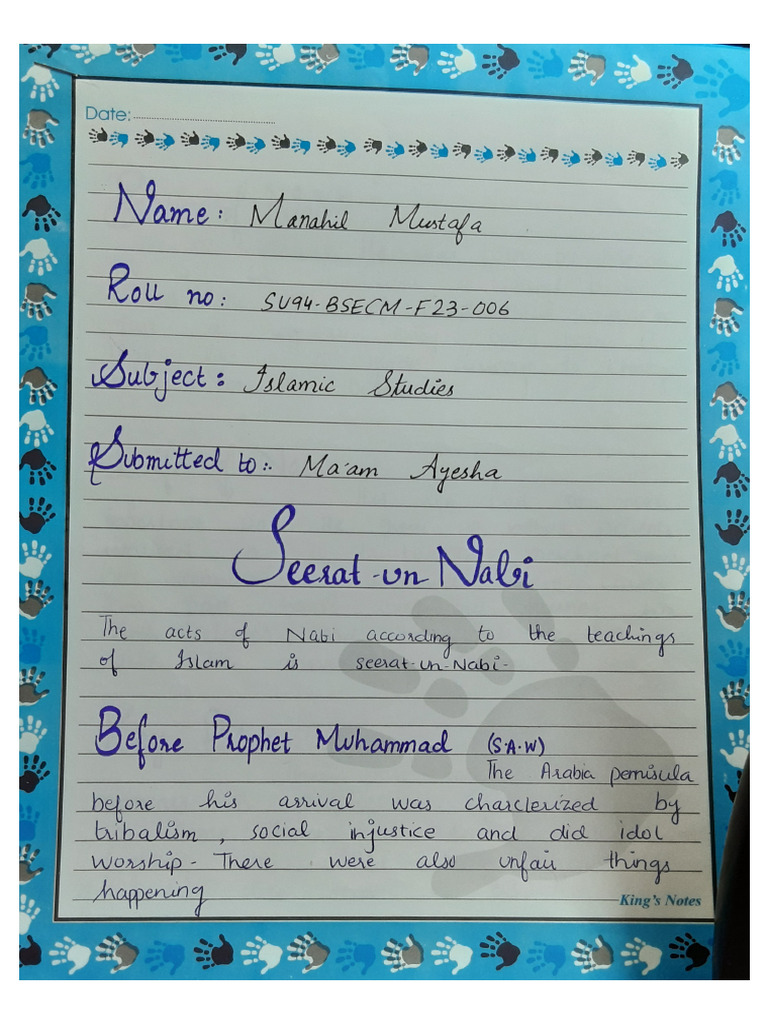 Date:
Name: Manahil Mustafa
Roll no: SU94-BSECM-F23-006
Subject: Islamic Studies
Submitted to:- Ma'am Ayesha
Seerat-un Nabi
The acts of Nabi according to the teachings
of Islam is seerat-un-Nabi-
Before Prophet Muhammad (S.A.W)
The Arabia pemisula
before his arrival was charcterized by
tribalism, social injustice and did idol
worship- There were also unfair things
happening
King's Notes